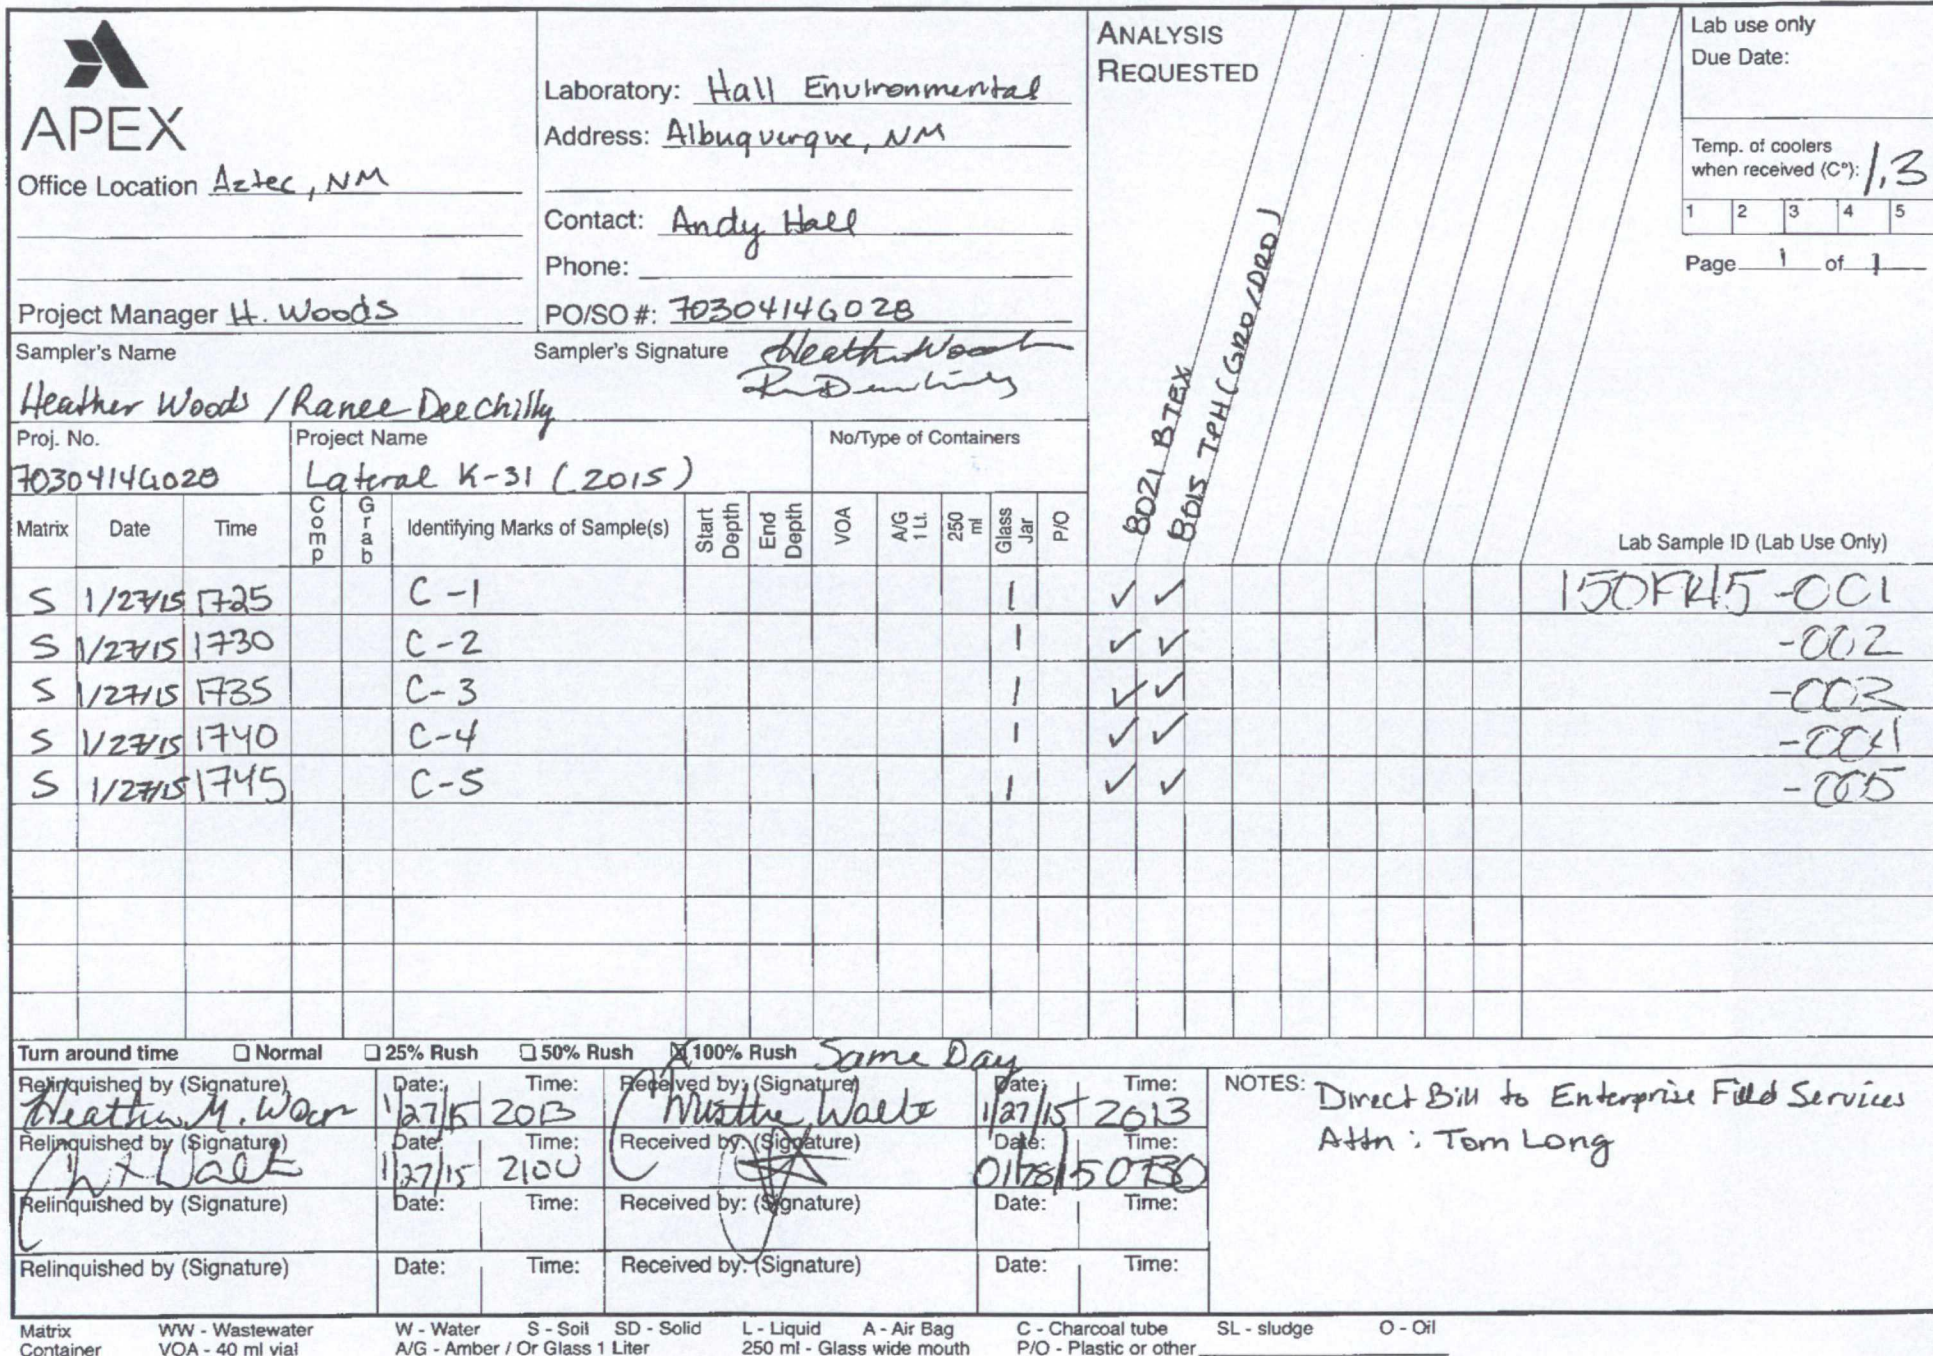 APEX
Office Location Aztec, NM
Project Manager H. Woods
Laboratory: Hall Environmental
Address: Albuquerque, NM
Contact: Andy Hall
Phone:
PO/SO #: 7030414G028
ANALYSIS
REQUESTED
8021 BTEX
8015 TPH (GRO/DRO)
Lab use only
Due Date:
Temp. of coolers
when received (C°): 1.3
1 2 3 4 5
Page 1 of 1
Sampler's Name
Heather Woods / Ranee Deechilly
Sampler's Signature Heather Woods
Proj. No. Project Name No/Type of Containers
7030414G028 Lateral K-31 (2015)
Matrix Date Time Comp Grab Identifying Marks of Sample(s) Start Depth End Depth VOA A/G 1 Lt. 250 ml Glass Jar P/O Lab Sample ID (Lab Use Only)
S 1/27/15 1725 C-1 1 ✓ ✓ -001
S 1/27/15 1730 C-2 1 ✓ ✓ -002
S 1/27/15 1735 C-3 1 ✓ ✓ -003
S 1/27/15 1740 C-4 1 ✓ ✓ -004
S 1/27/15 1745 C-5 1 ✓ ✓ -005
Turn around time Normal 25% Rush 50% Rush 100% Rush Same Day
Relinquished by (Signature) Date: Time: Received by: (Signature) Date: Time:
Heather M. 1/27/15 2013 1/27/15 2013
Relinquished by (Signature) Date: Time: Received by: (Signature) Date: Time:
1/27/15 2100 01/28/15 0730
Relinquished by (Signature) Date: Time: Received by: (Signature) Date: Time:
Relinquished by (Signature) Date: Time: Received by: (Signature) Date: Time:
NOTES: Direct Bill to Enterprise Field Services
Attn: Tom Long
Matrix WW - Wastewater W - Water S - Soil SD - Solid L - Liquid A - Air Bag C - Charcoal tube SL - sludge O - Oil
Container VOA - 40 ml vial A/G - Amber / Or Glass 1 Liter 250 ml - Glass wide mouth P/O - Plastic or other